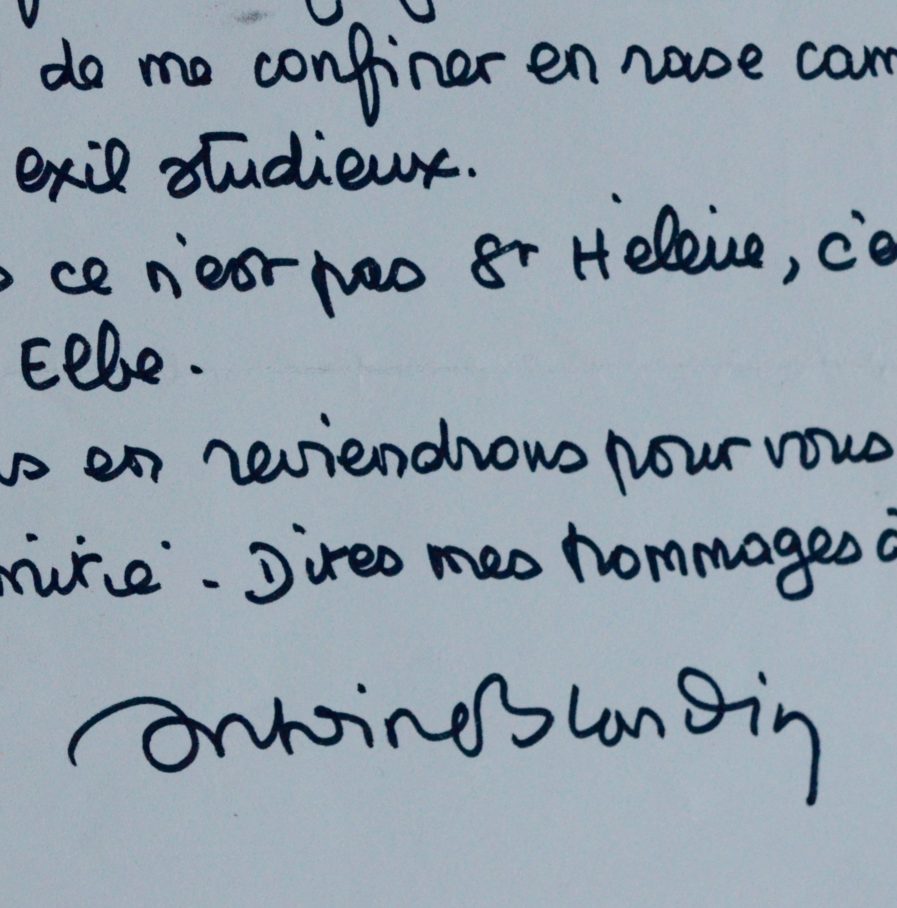 de me confiner en rase cam
exil studieux.
s ce n'est pas St Hélène, c'e
Elbe.
us en reviendrons pour vous
mitié. Dites mes hommages à
Antoine Blondin